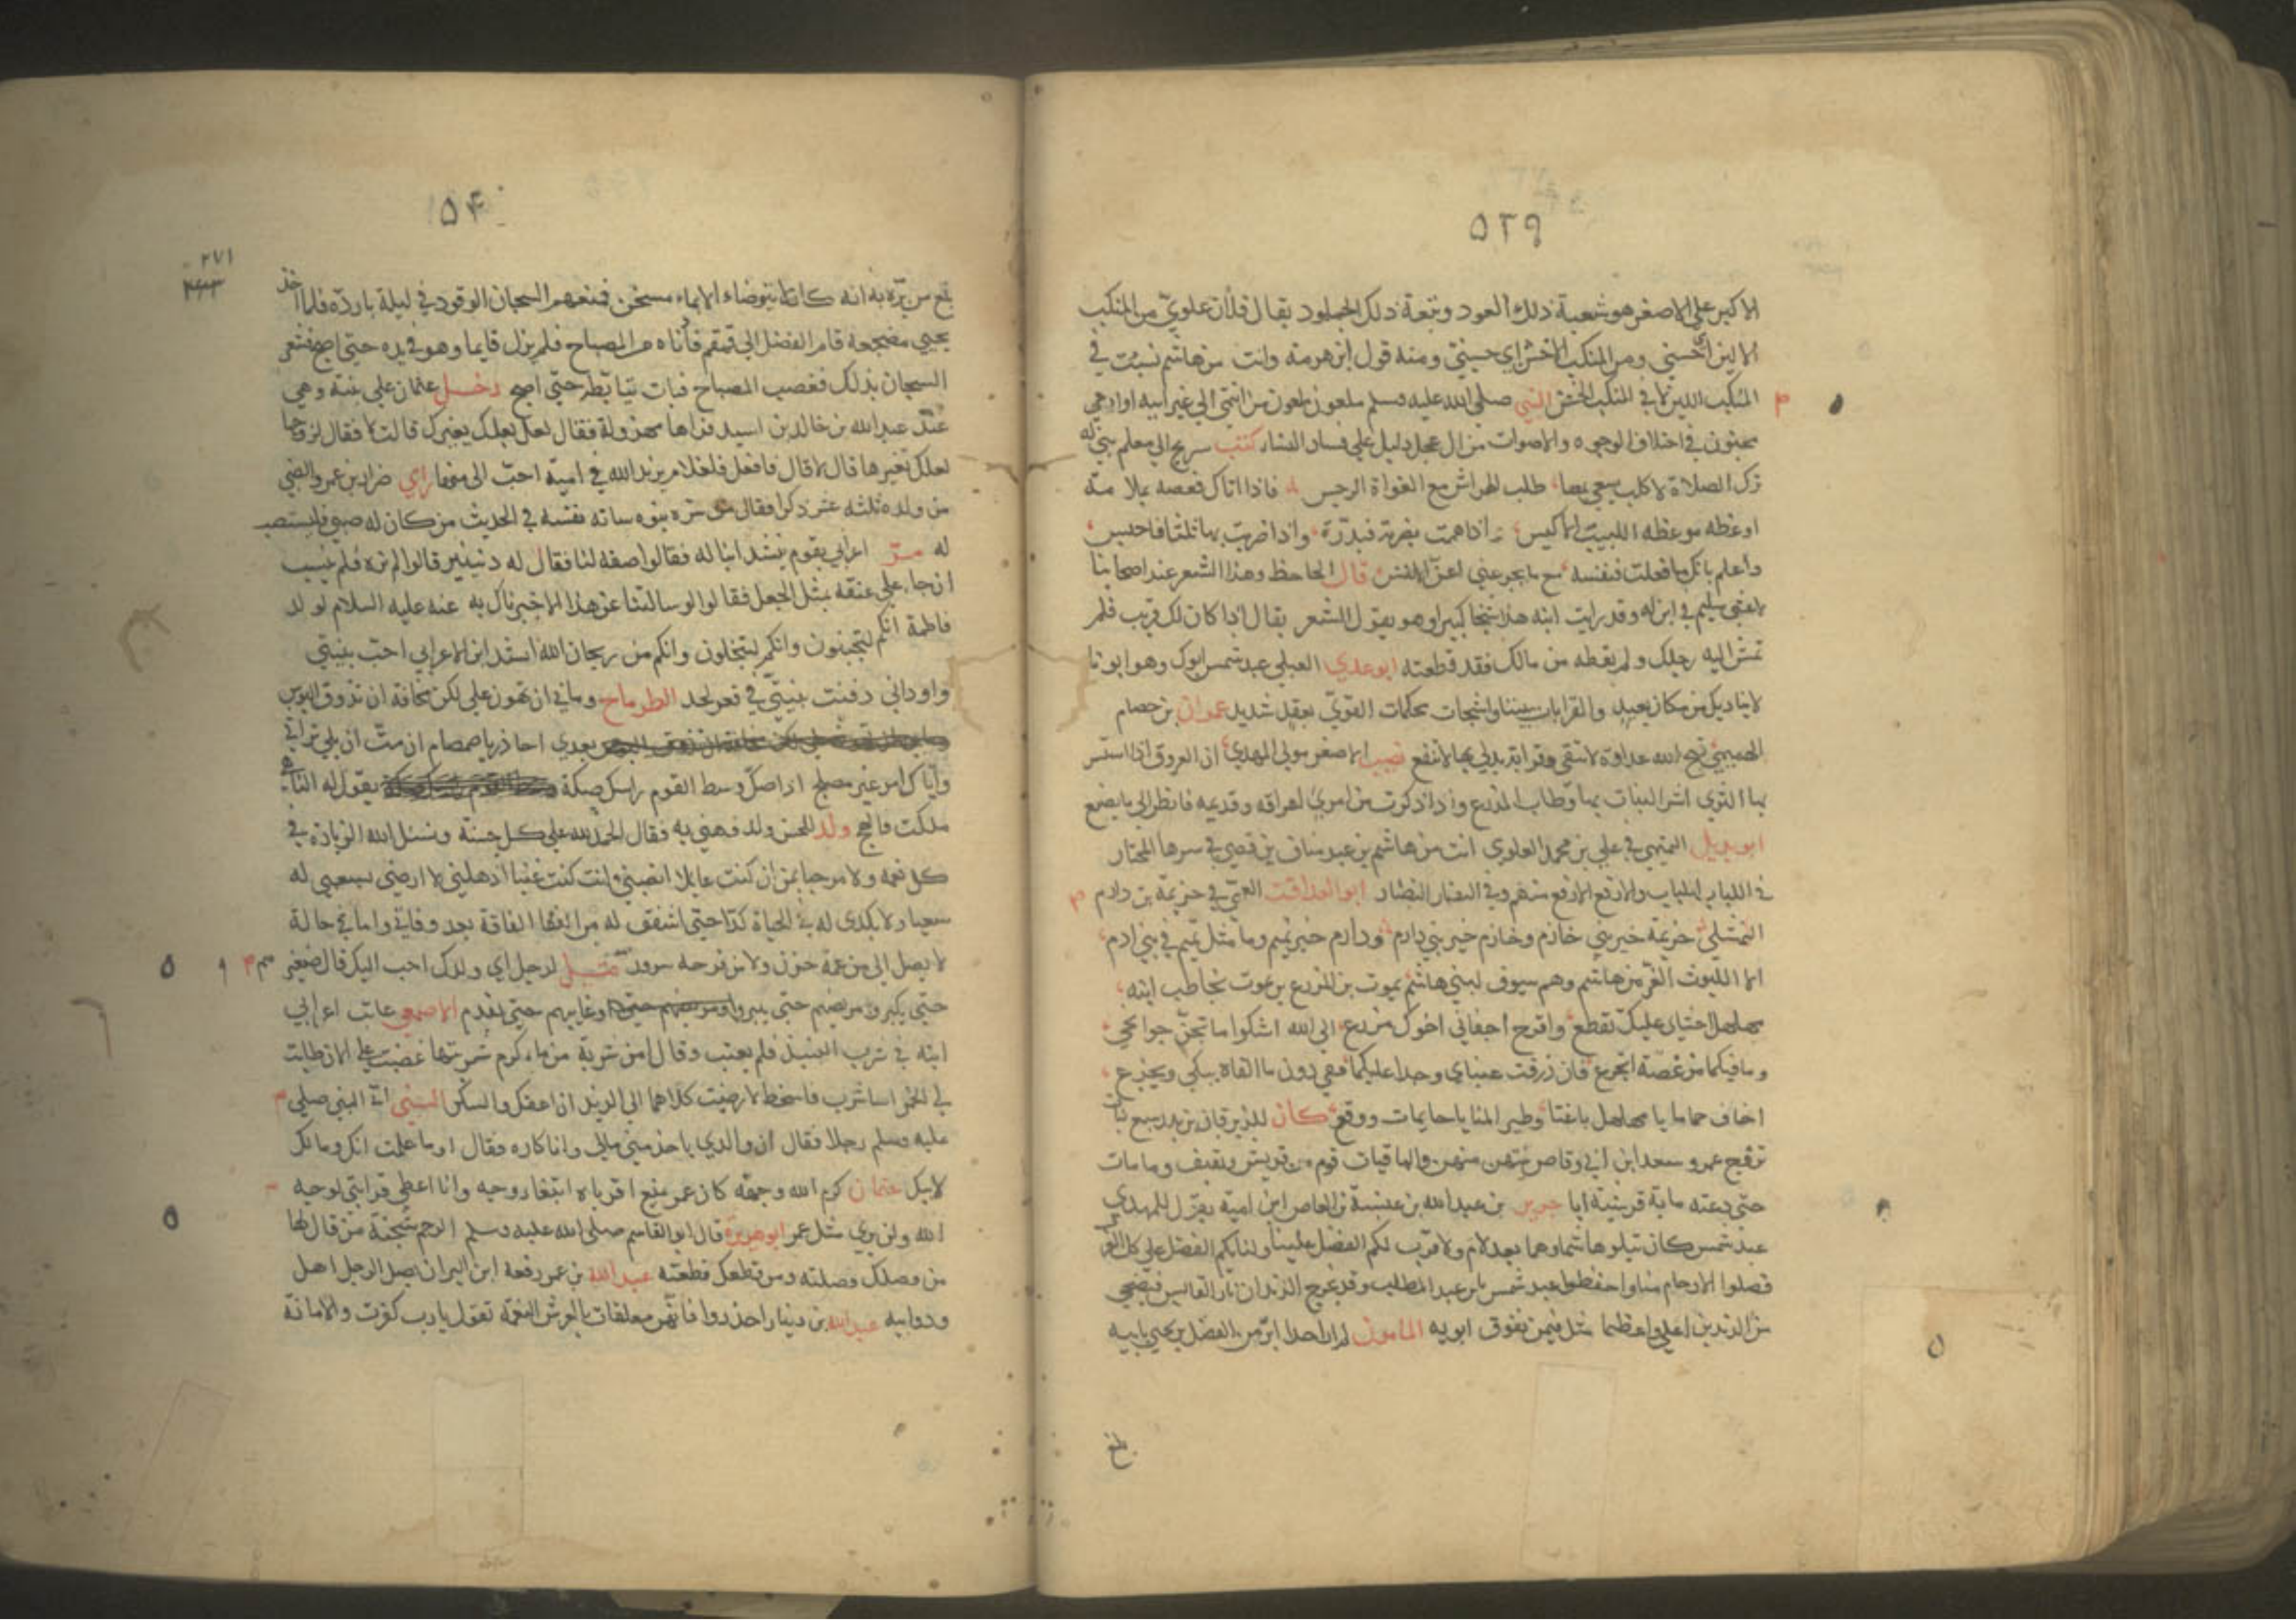 ٥٢٩
الاكبر على الاصغر هو شعبة ذلك العود ونبعة ذلك الجلمود يقال فلان علوي من المنكب
الالين اي حسني ومن المنكب الاخشن اي حسيني ومنه قول ابن هرمة وانت من هاشم نسبت في
المنكب اللين لا في المنكب الخشن النبي صلى الله عليه وسلم ملعون ملعون من انتمى الى غير ابيه او ادعى
في اختلاف الوجوه والاصوات من ال عجل دليل على فساد النساء كتب شريح الى معلم بنيه
ترك الصلاة لاكلب يسعى بها طلب الهراش مع الغواة الرجس فاذا اتاك فعضه بملامة
او عظه موعظه اللبيب الاكيس واذا هممت بضربه فبدرة واذا ضربت بها ثلثا فاحبس
واعلم بانك ما فعلت فنفسه مع ما يجرعني اعز الانفس قال الجاحظ وهذا الشعر عند اصحابنا
لاعشى سليم في ابن له وقد رايت ابنه هذا شيخا كبيرا وهو يقول الشعر يقال اذا كان لك قريب فلم
تمش اليه رجلك ولم يعطه من مالك فقد قطعته ابو عدي العبلي عبد شمس ابوك وهو ابونا
لا يناديك من مكان بعيد والقرابات بيننا واشجات محكمات القوى بعقد شديد عمران بن حصام
الله عداوة لا تتقى وقرابة يدلي بها لا تنفع نصيب الاصغر مولى المهدي ان العروق اذا استسر
بها الثرى اشر النبات بها وطاب المزرع واذا ذكرت من امرئ اعراقه وقديمه فانظر الى ما يصنع
ابو بديل التميمي في علي بن محمد العلوي انت من هاشم بن عبد مناف بن قصي في سرها المختار
في اللباب اللباب والارفع الارفع منهم وفي النضار النضار ابو العذافر العمي في خزيمة بن دارم
النهشلي خزيمة خير بني خازم وخازم خير بني دارم ودارم خير تميم وما مثل تميم في بني ادم
الا الليوث الغر من هاشم وهم سيوف لبني هاشم يموت بن المزرع بن يموت يخاطب ابنه
مهلهل احشاي عليك تقطع واقرح اجفاني اخوك مزرع الى الله اشكوا ما تجن جوانحي
وما فيكما من غصة اتجرع فان ذرفت عيناي وجدا عليكما ففي دون ما القاه يبكى ويجزع
اخاف حماما يا مهلهل باغتا وطير المنايا حايمات ووقع كان للزبرقان بن بدر سبع بنات
تزوج عمرو سعد ابن ابي وقاص منهن والباقيات قوم من قريش وثقيف وما مات
حتى دعته ماية قرشية ابا جرير بن عبد الله بن عنبسة بن العاص ابن امية يقول للمهدي
عبد شمس كان يتلو هاشما وهما بعد لام ولاب لكم الفضل علينا ولنا بكم الفضل على كل العرب
فصلوا الارحام منا واحفظوا عبد شمس يا بن عبد المطلب وقد يخرج الزندان نار القابس فيضحي
من الزندين اعلى واعظما مثل فيمن يفوق ابويه المامون لم ار احدا ابر من الفضل بن يحيى بابيه
٥٤٠
٢٧١
بلغ من بره به انه كان لا يتوضاء الا بماء مسخن فمنعهم السجان الوقود في ليلة بارده فلما اخذ
يحيى مضجعه قام الفضل الى قمقم فادناه من المصباح فلم يزل قايما وهو في يده حتى اصبح فشعر
السجان بذلك فغصب المصباح فبات يتابطه حتى اصبح دخل عثمان على بنته وهي
عند عبد الله بن خالد بن اسيد فراها مهزولة فقال لعل بعلك يغيرك قالت لا فقال لزوجها
لعلك تغيرها قال لا قال فافعل فلغلام يزيد الله في امية احب الي منها راى ضرار بن عمرو الضبي
من ولده ثلثه عشر ذكرا فقال من سره بنوه ساته نفسه في الحديث من كان له صبي فليستصب
له مر اعرابي بقوم ينشد ابنا له فقالوا صفه لنا فقال له دنينير قالوا لم نره فلم ينشب
ان جاء على عنقه بمثل الجعل فقالوا لو سالتنا عن هذا لاخبرناك به عنه عليه السلام لولد
فاطمة انكم لتجبنون وانكم لتبخلون وانكم من ريحان الله انشد ابن الاعرابي احب بنيتي
واوداني دفنت بنيتي في قعر لحد الطرماح وما بي ان تهون علي لكن مخافة ان تذوق البوس
بعدي احاذر يا صمصام ان مت ان يلي تراثي
واياك امر غير مصلح اذا صك وسط القوم راسك صكة يقول له الناهي
ملكت فاسجح ولد للحسن ولد فهني به فقال الحمد لله على كل حسنة ونسئل الله الزيادة في
كل نعمه ولا مرحبا بمن ان كنت عايلا انصبني وان كنت غنيا اذهلني لا ارضى بسعيي له
سعيا ولا بكدي له في الحياة كدا حتى اشفق له من الفاقة بعد وفاتي وانا في حالة
لا يصل الي من غمه حزن ولا من فرحه سرور قيل لرجل اي ولدك احب اليك قال صغيرهم
حتى يكبر ومريضهم حتى يبرا وغايبهم حتى يقدم الاصمعي عاتب اعرابي
ابنه في شرب النبيذ فلم يعتب وقال امن شربة من ماء كرم شربتها غضبت علي الان طابت
لي الخمر ساشرب فاسخط لا رضيت كلاهما الي لذيذ ان اعقك والسكر النبي اتى النبي صلى
عليه وسلم رجلا فقال ان والدي ياخذ مني مالي وانا كاره فقال او ما علمت انك ومالك
لابيك عثمان كرم الله وجهه كان عمر يمنع اقرباه ابتغاء وجه وانا اعطي قرابتي لوجه
الله ولن يرى مثل عمر ابو هريرة قال ابو القاسم صلى الله عليه وسلم الرحم شجنة من قال لها
من وصلك وصلته ومن قطعك قطعته عبد الله بن عمر رفعه ابن البر ان يصل الرجل اهل
ود ابيه عبد الله بن دينار احذروا فانهن معلقات بالعرش النعمة تقول يا رب كفرت والامانة